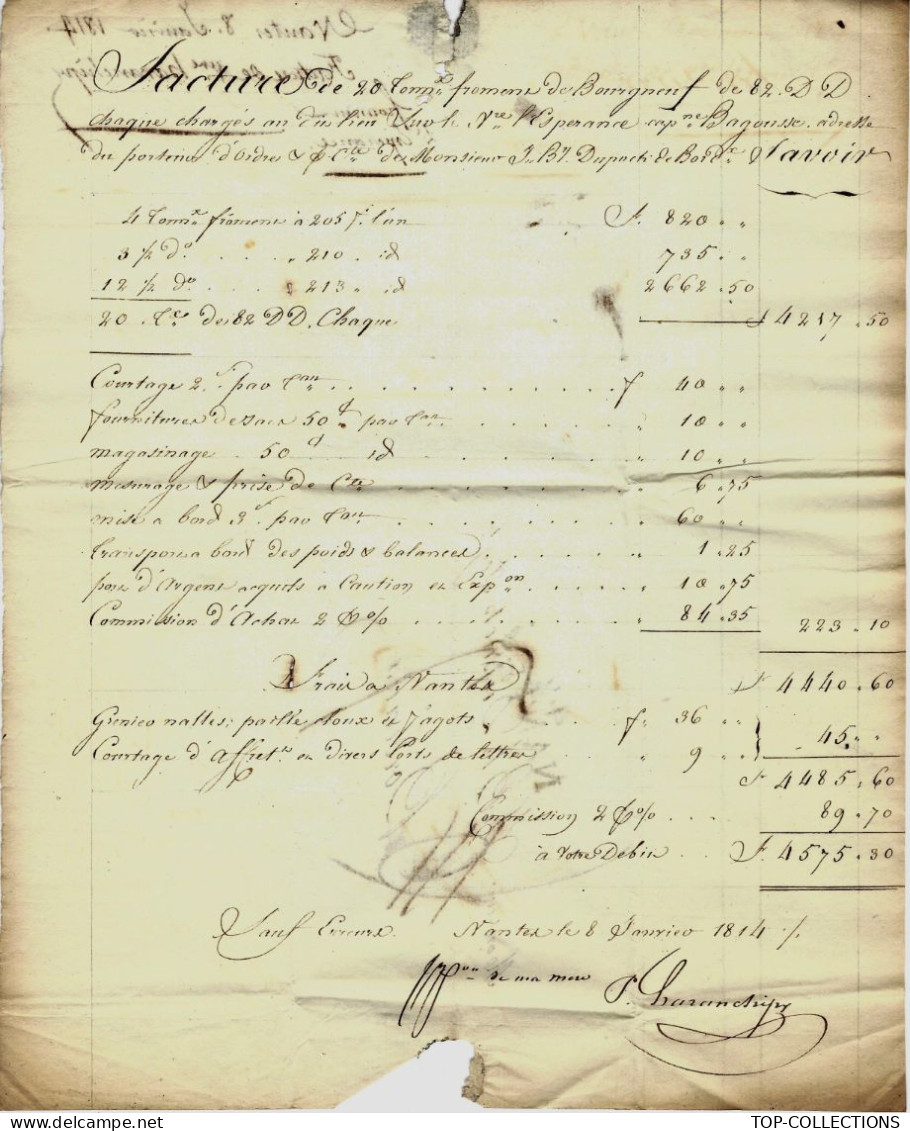 Nantes 8. Janvier 1814
Facture de 20 Tonnx froment de Bourgneuf de 82. D D
chaque chargés au du lieu sur le Nre l'Esperance capne Bagousse, adresse
du porteur d'ordre & p Cte de Monsieur J. Bt Dupacti de Bordx Savoir
4 Tonnx froment à 205 f l'un f. 820 " "
3 1/2 do . . . . " 210 . id 735 " "
12 1/2 do . . . . " 213 " id 2662 . 50
20 . Tx de 82 DD. Chaque f 4217 . 50
Courtage 2 f par Tau f 40 " "
fournitures de sacs 50 c par Tau " 10 " "
magasinage . 50 c id " 10 " "
mesurage & prise de Cte " 6 . 75
mise a bord 3 f par Tau " 60 " "
transport a bord des poids & balances " 1 . 25
port d'Argent acquits à Caution et Expon " 10 . 75
Commission d'Achat 2 p% " 84 . 35 223 . 10
Frais a Nantes f 4440 . 60
Grenier nattes, paille cloux et fagots f " 36 " "
Courtage d'Affretx et divers Ports de lettres " 9 " " 45 " "
f 4485 . 60
Commission 2 p% . . . 89 . 70
à Votre Debit . . f. 4575 . 30
Sauf Erreurs. Nantes le 8 Janvier 1814 /.
ppon de ma mere
TOP-COLLECTIONS